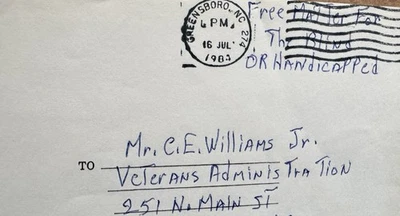 GREENSBORO, NC 274
PM
16 JUL
1984
Free Matter For
The Blind
OR HANdicAPPEd
Mr. C.E. Williams Jr.
TO Veterans AdminisTRATION
251 N. MAIN ST